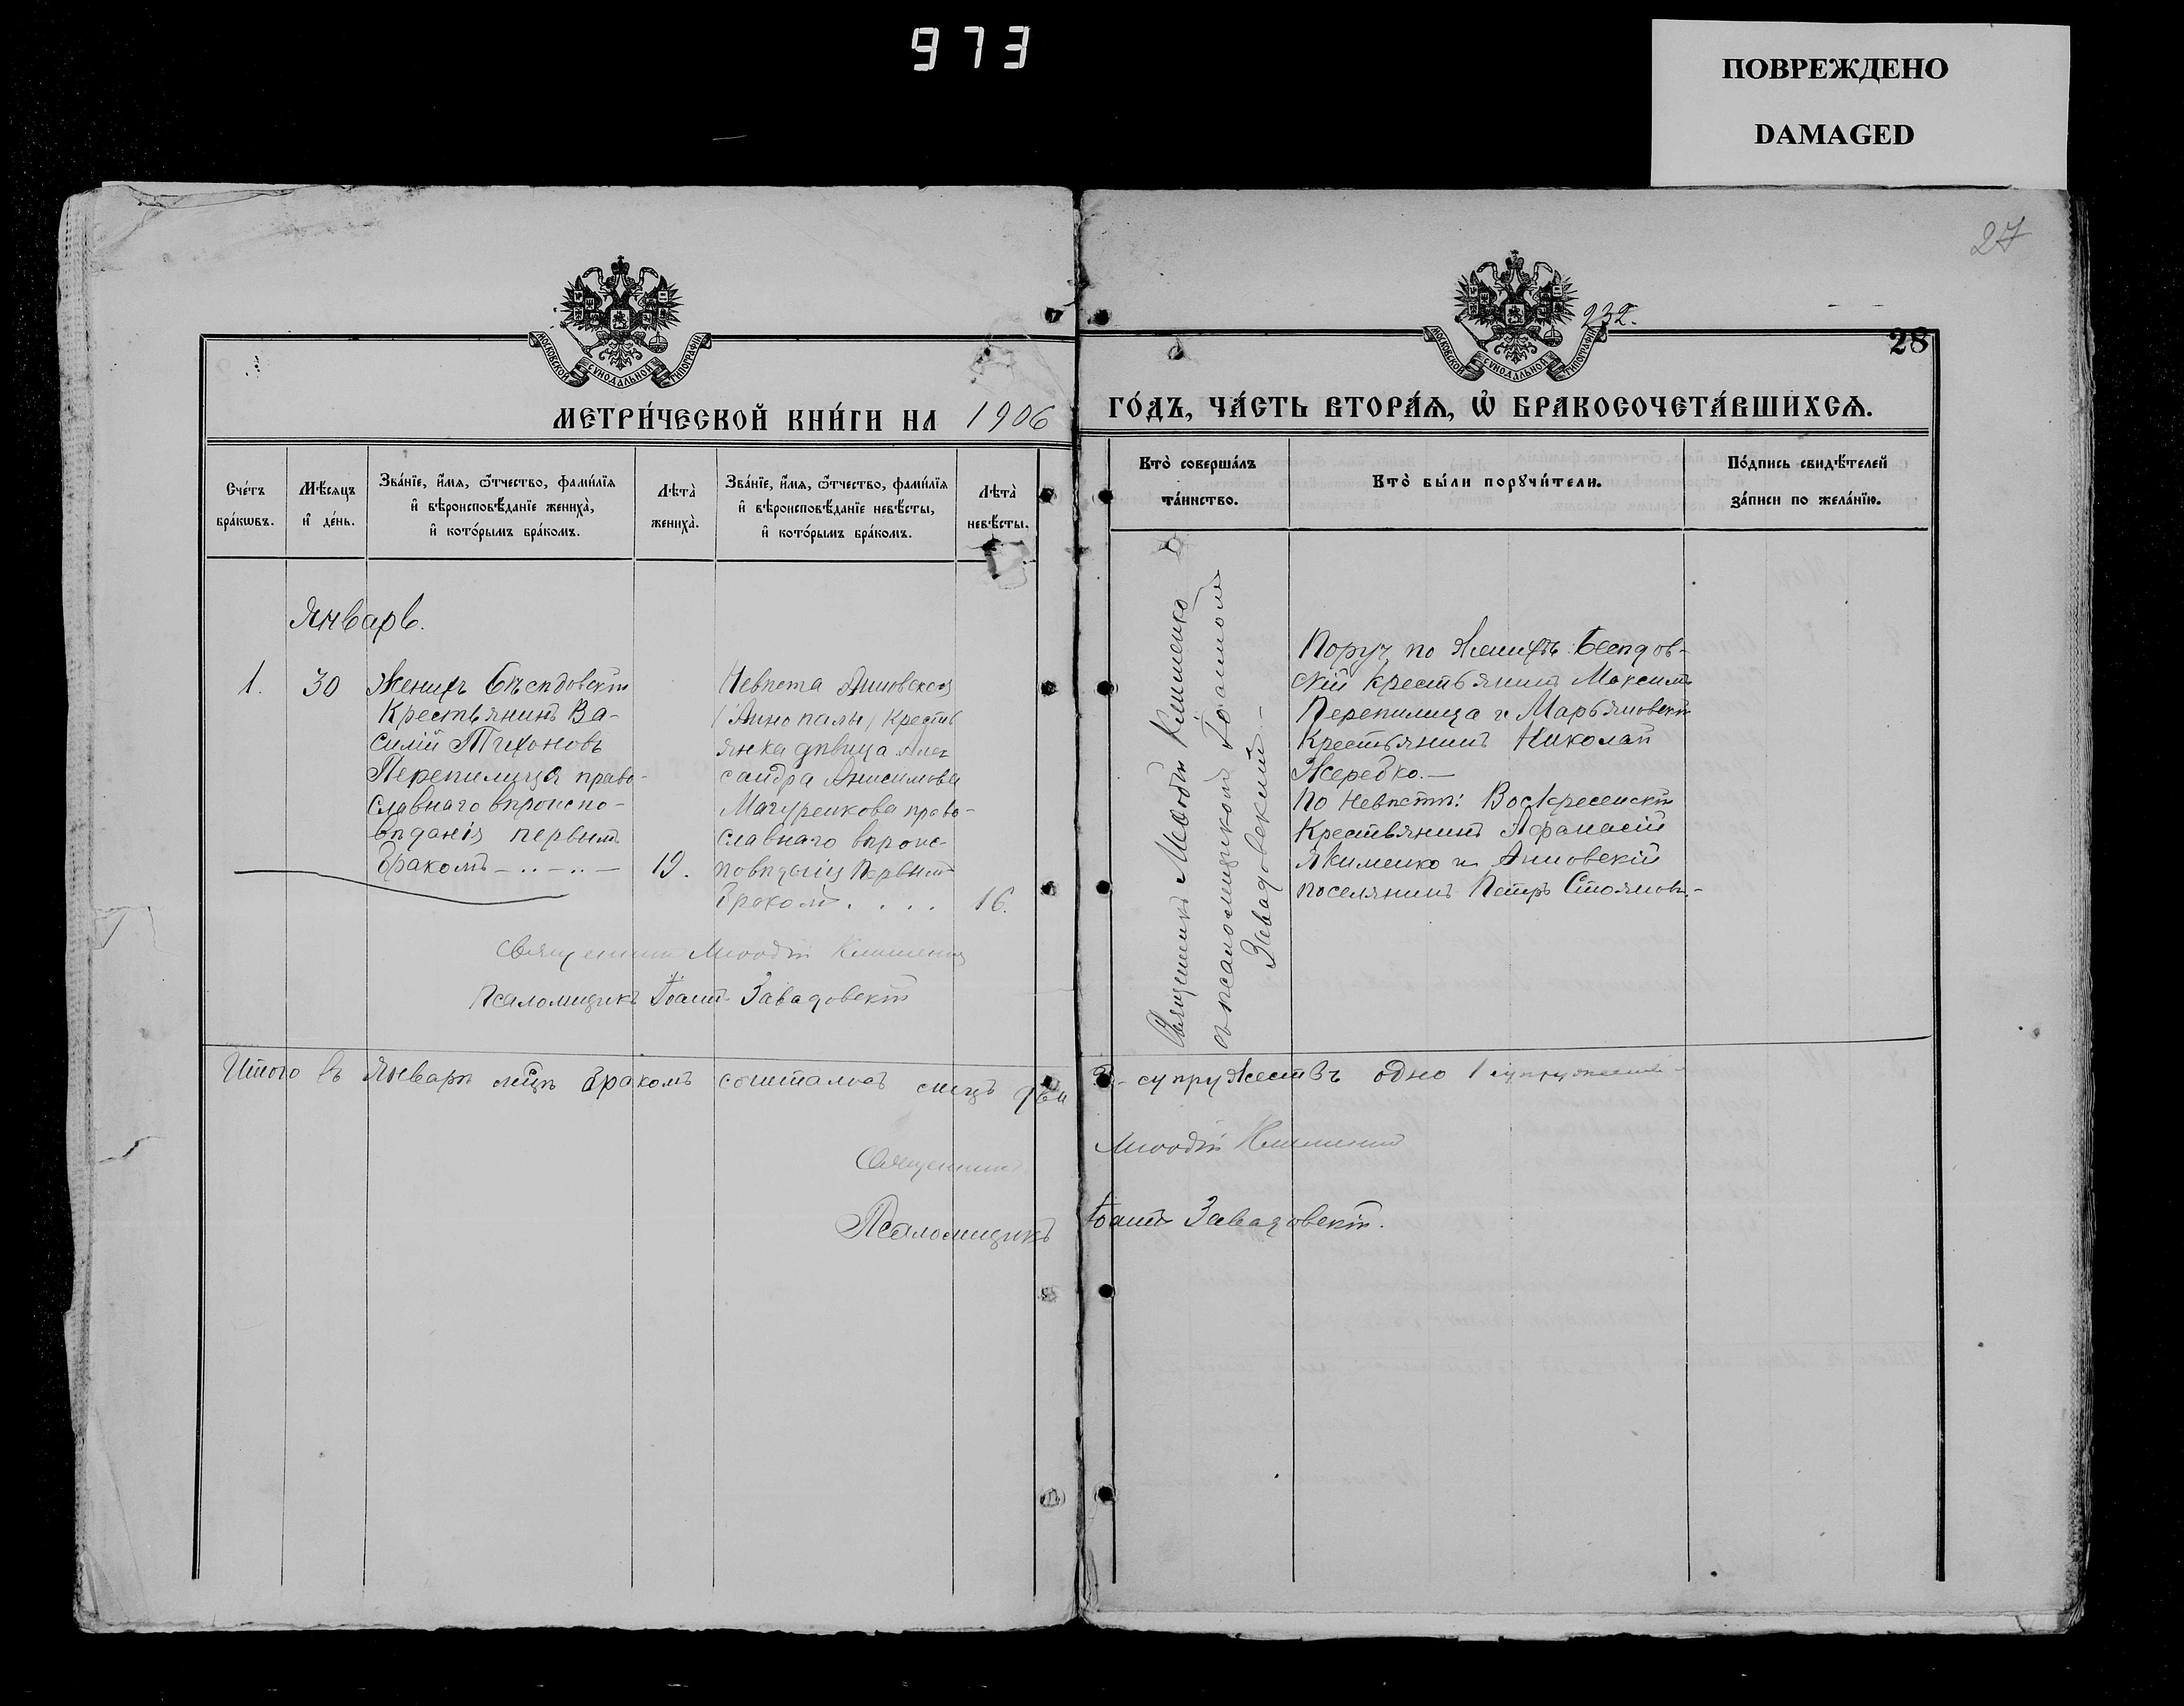 973
ПОВРЕЖДЕНО
DAMAGED
27
232.
28
МОСКОВСКОЙ СѴНОДАЛЬНОЙ ТИПОГРАФІИ
МОСКОВСКОЙ СѴНОДАЛЬНОЙ ТИПОГРАФІИ
МЕТРИ́ЧЕСКОЙ КНИ́ГИ НА 1906
ГО́ДЪ, ЧА́СТЬ ВТОРА́Ѧ, Ѡ҆ БРАКОСОЧЕТА́ВШИХСѦ.
Сче́тъ
бра́кѡвъ.
Мѣ́сѧцъ
и҆ де́нь.
Зва́нїе, и҆́мѧ, ѻ҆́тчество, фами́лїѧ
и҆ вѣроисповѣ́данїе жениха̀,
и҆ кото́рымъ бра́комъ.
Лѣта̀
жениха̀.
Зва́нїе, и҆́мѧ, ѻ҆́тчество, фами́лїѧ
и҆ вѣроисповѣ́данїе невѣ́сты,
и҆ кото́рымъ бра́комъ.
Лѣта̀
невѣ́сты.
Кто̀ соверша́лъ
та́инство.
Кто̀ бы́ли порꙋчи́тели.
По́дпись свидѣ́телей
за́писи по жела́нїю.
Январь.
1. 30
Женихъ Бѣсѣдовскій
Крестьянинъ Ва-
силій Тихоновъ
Перепилица право-
славнаго вѣроиспо-
вѣданія первымъ
бракомъ 19.
Невѣста Анновская
/Аннополы/ Кресть
янка дѣвица Алек
сандра Анисимова
Мачуренкова право-
славнаго вѣроис-
повѣданія первымъ
бракомъ . . . . 16.
Священникъ Меѳодій Клименко
съ псаломщикомъ Іоанномъ
Завадовскимъ
Поруч. по Женихѣ: Бесѣдов-
скій крестьянинъ Максимъ
Перепилица и Марьяновскій
Крестьянинъ Николай
Жеребко.—
По Невѣстѣ: Воскресенскій
Крестьянинъ Афанасій
Якименко и Анновскій
поселянинъ Петръ Стояновъ.-
Священникъ Меѳодій Клименко
Псаломщикъ Іоаннъ Завадовскій
Итого въ Январѣ мѣцѣ бракомъ сочеталось лицъ два
2 - супружествъ одно 1 супружество
Священникъ Меѳодій Клименко
Псаломщикъ Іоаннъ Завадовскій.